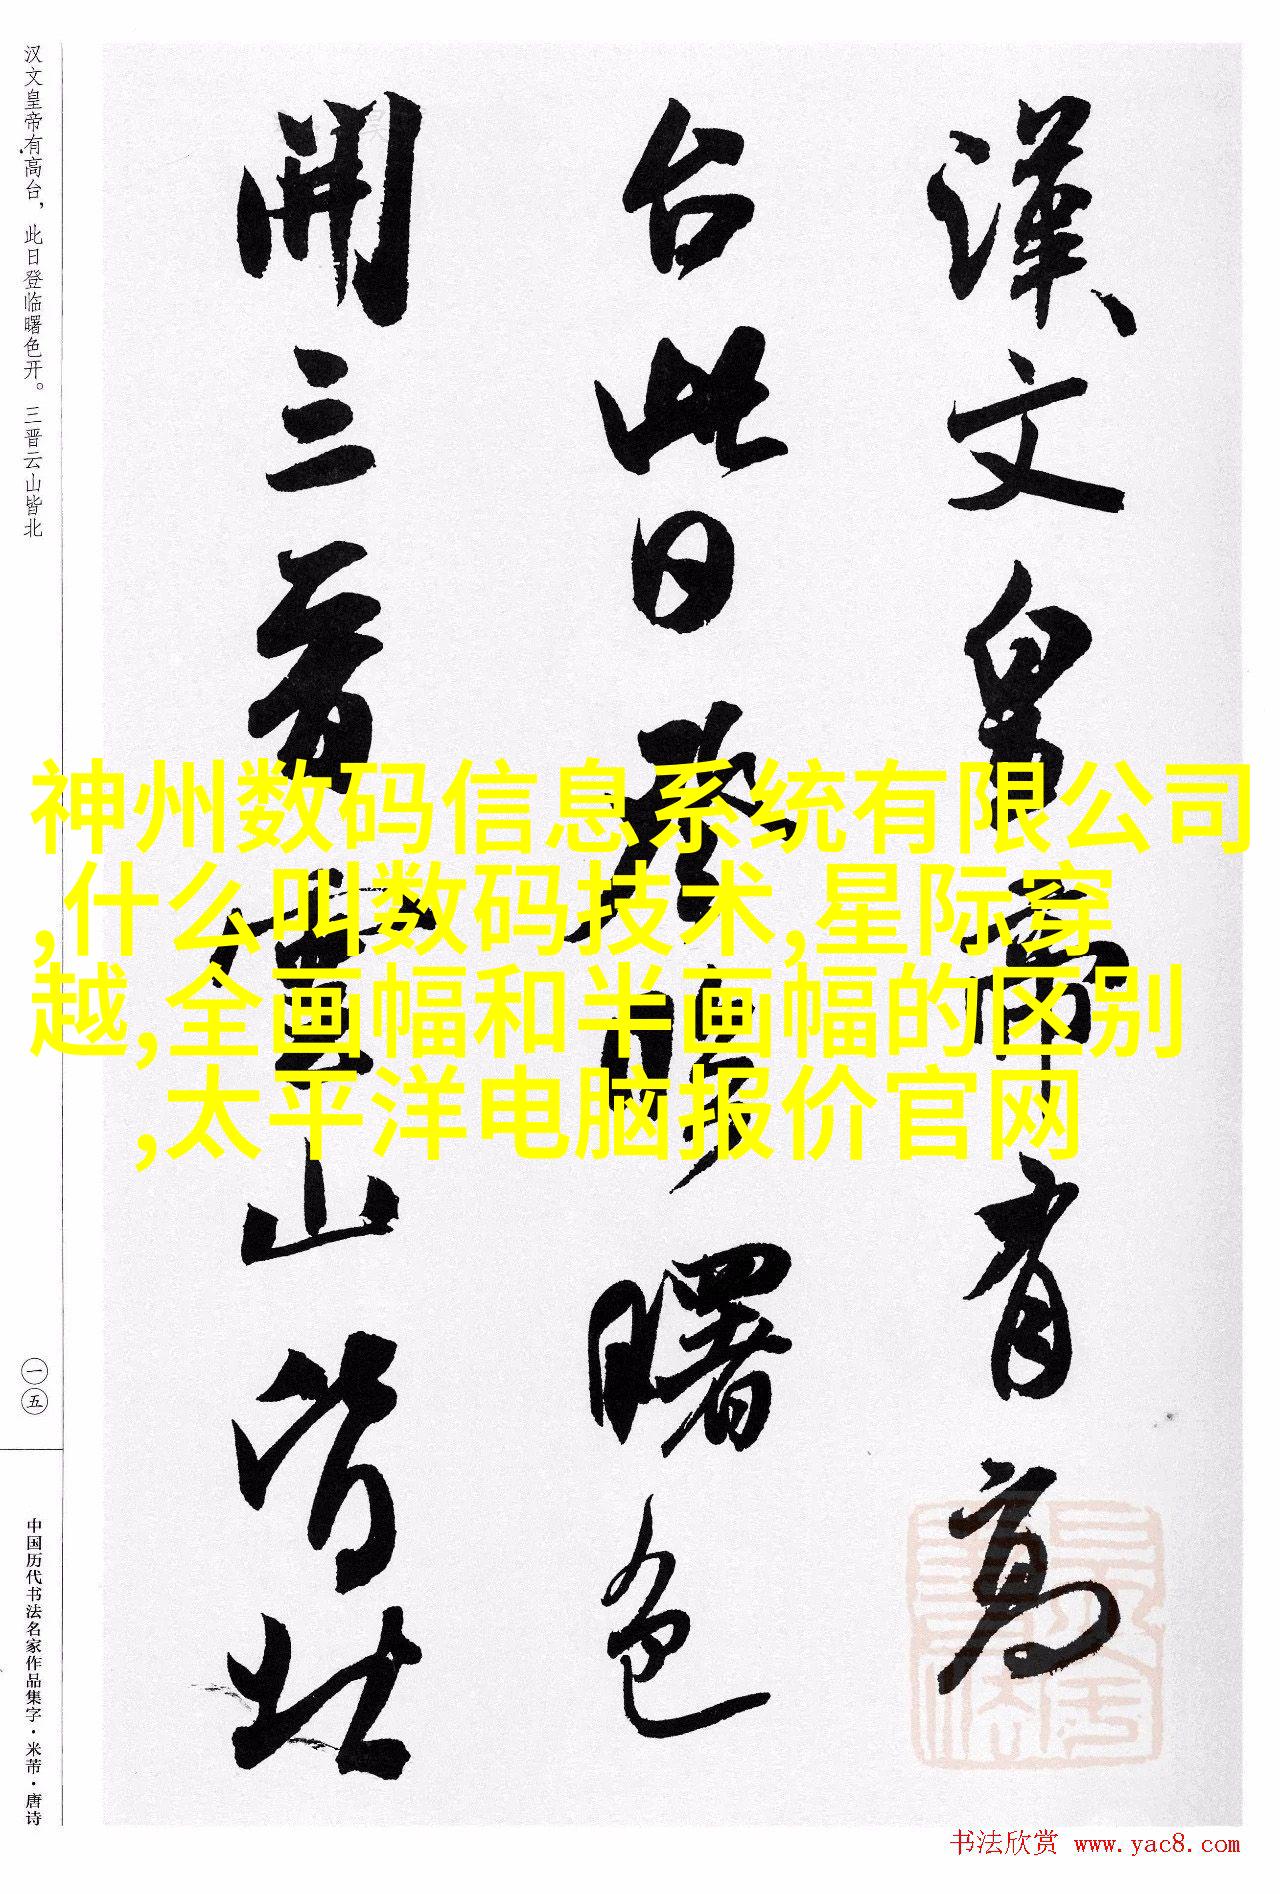 漢文皇帝有高
台此日登臨曙色
開三晉雲山皆北
汉文皇帝有高台，此日登临曙色开。三晋云山皆北
一五
中国历代书法名家作品集字·米芾·唐诗
神州数码信息系统有限公司
,什么叫数码技术,星际穿
越,全画幅和半画幅的区别
,太平洋电脑报价官网
书法欣赏 www.yac8.com